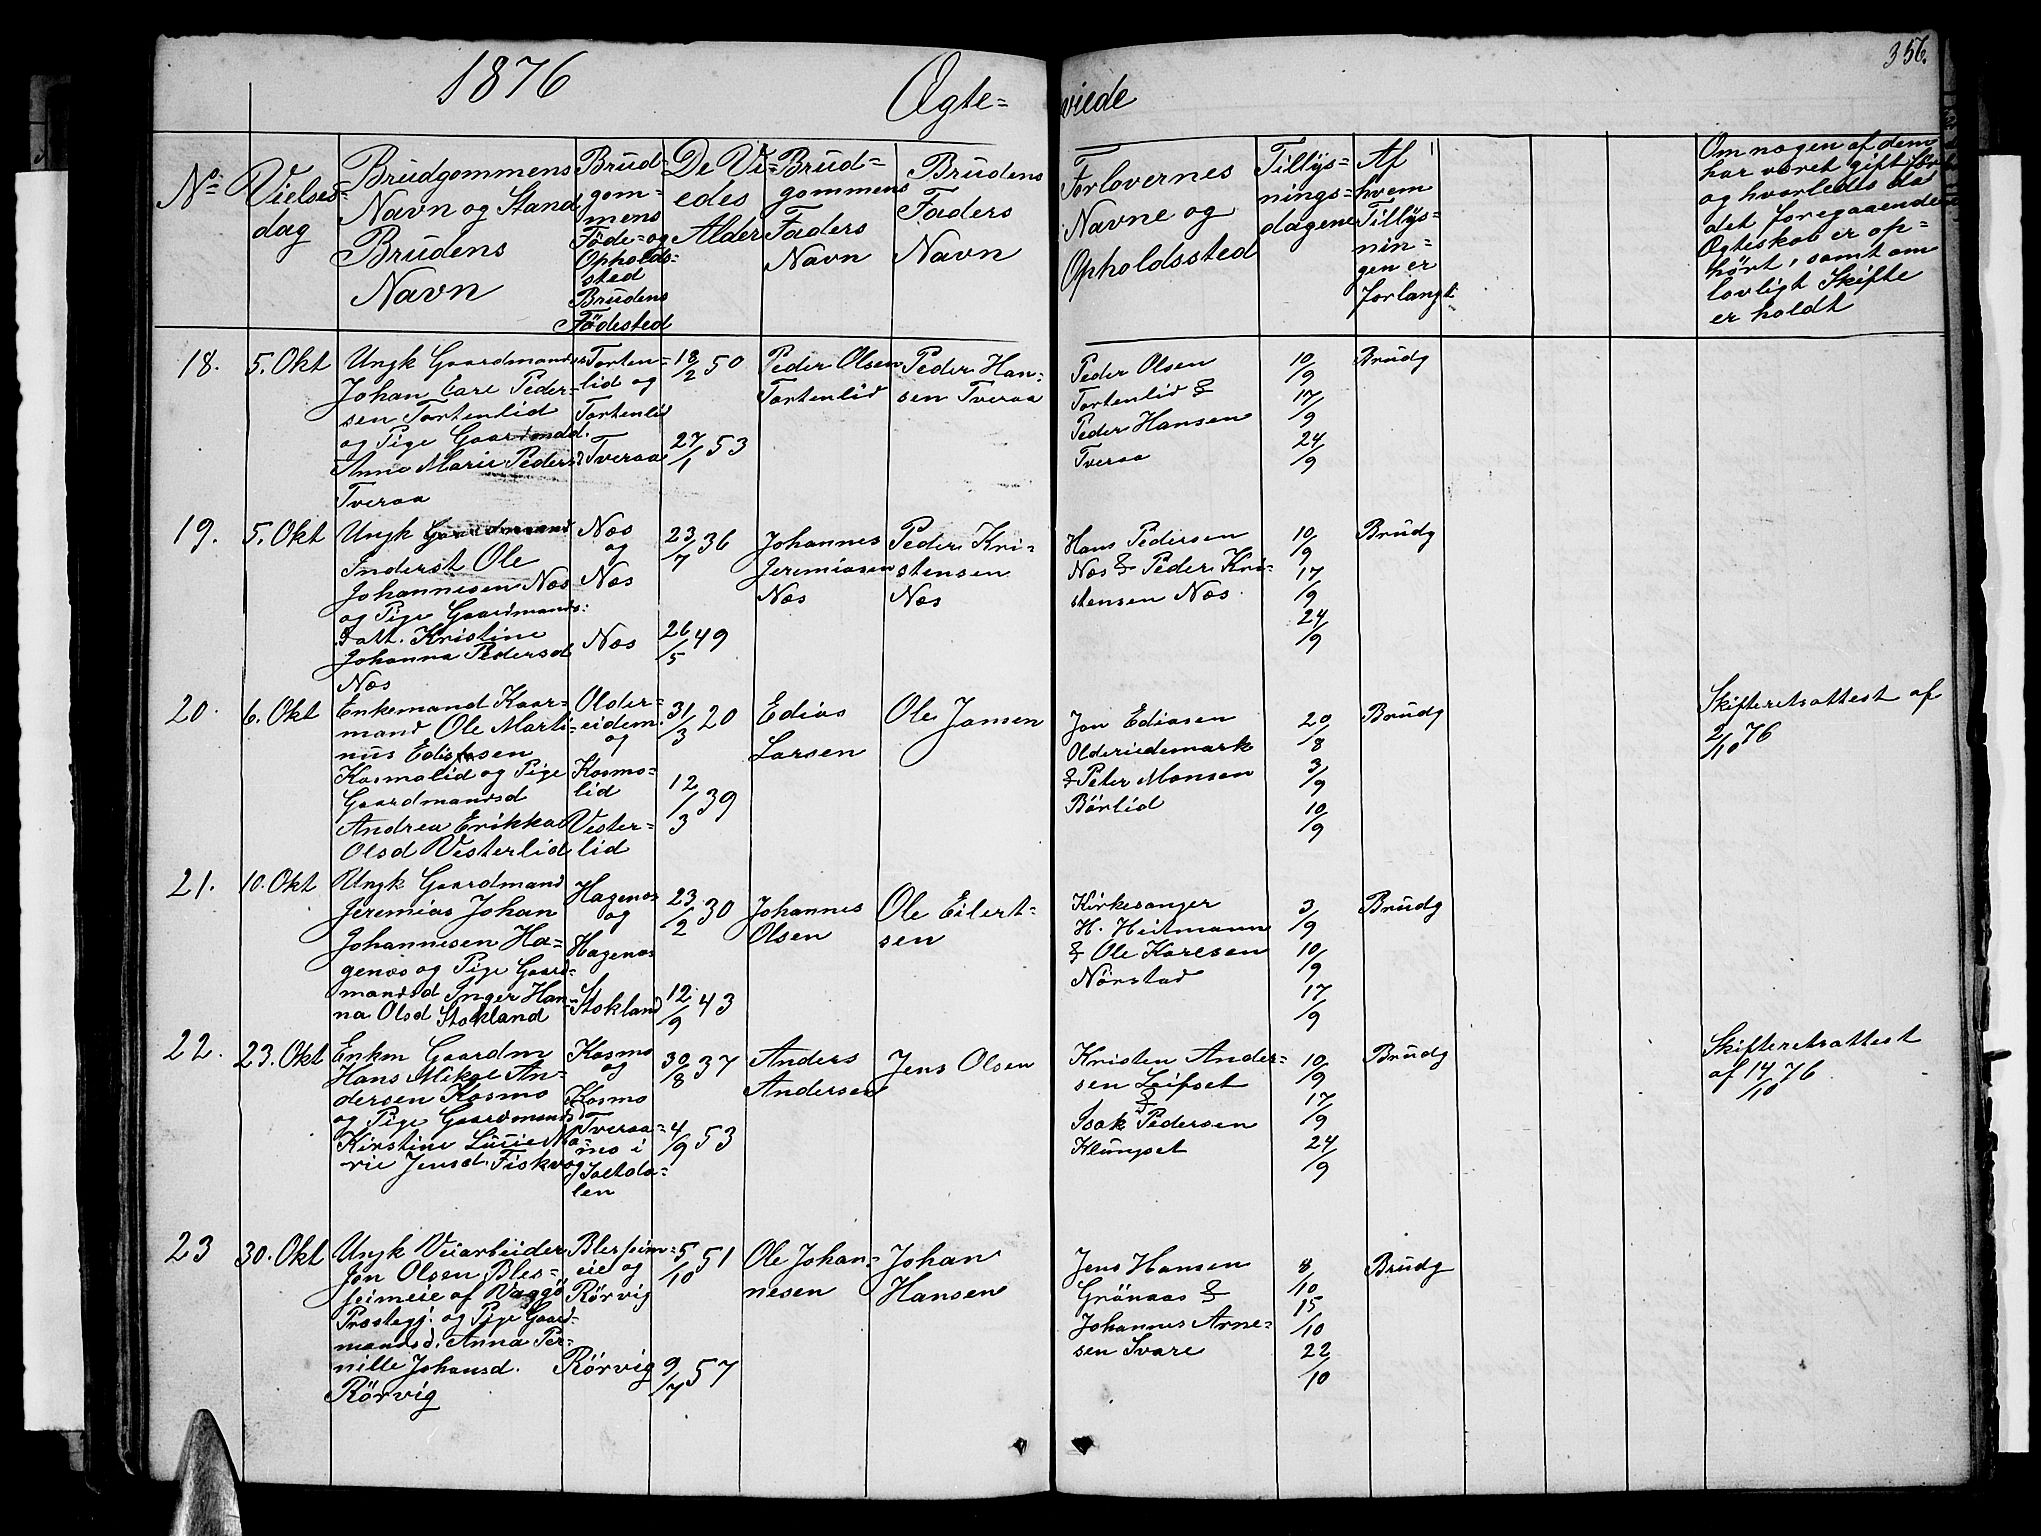 1876
Ægte=
viede
356.
No.
Vielses=
dag
Brudgommens
Navn og Stand
Brudens
Navn
Brud=
gom=
mens
Föde=og
Opholds=
sted
Brudens
Födested
De Vi=
edes
Alder
Brud=
gommens
Faders
Navn
Brudens
Faders
Navn
Forlovernes
Navne og
Opholdssted
Tillys=
nings=
dagene
Af
hvem
Tillys=
nin=
gen er
forlangt
Om nogen af dem
har været gift før
og hvorledes da
det foregaaende
Ægteskab er op=
hørt, samt om
lovligt Skifte
er holdt
18.
5. Okt
Ungk Gaardmands
Johan Carl Peder=
sen Tortenlid
og Pige Gaardmdd.
Anne Marie Pedersd
Tveraa
Torten=
lid og
Tortenlid
Tveraa
18/2 50
27/1 53
Peder Olsen
Tortenlid
Peder Han=
sen Tveraa
Peder Olsen
Tortenlid &
Peder Hansen
Tveraa
10/9
17/9
24/9
Brudg
19.
5. Okt
Ungk Gaardmand
Inderst Ole
Johannesen Næs
og Pige Gaardmands=
datt. Kristine
Johanna Pedersd
Næs
Næs
og
Næs
Næs
23/7 36
26/5 49
Johannes
Jeremiasen
Næs
Peder Kri=
stensen
Næs
Hans Pedersen
Næs & Peder Kri=
stensen Næs.
10/9
17/9
24/9
Brudg
20.
6. Okt
Enkemand Kaar=
mand Ole Marti=
nus Ediassen
Kosmolid og Pige
Gaardmandsd
Andrea Erikka
Olsd Vesterlid
Older=
eidem.
og
Kosmo=
lid
Vester=
lid
31/3 20
12/3 39
Edias
Larsen
Ole Jansen
Jon Ediasen
Oldereidemark
& Peter Monsen
Börlid
20/8
3/9
10/9
Brudg
Skifteretsattest af
2/10 76
21.
10. Okt
Ungk Gaardmand
Jeremias Johan
Johannesen Ha=
genæs og Pige Gaard=
mandsd Inger Han=
na Olsd Stokland
Hagenæs
og
Hagenæs
Stokland
23/2 30
12/9 43
Johannes
Olsen
Ole Eilert=
sen
Kirkesanger
H. Heitmann
& Ole Karlsen
Nörstad
3/9
10/9
17/9
Brudg
22.
23. Okt
Enkm Gaardm
Hans Mikal An=
dersen Kosmo
og Pige Gaardmandsd
Kirstine Lucie Ma=
rie Jensd. Fiskvag
Kosmo
og
Kosmo
Tveraa=
næs i
Saltda=
len
30/8 37
4/9 53
Anders
Andersen
Jens Olsen
Kristen Ander=
sen Leifset
&
Isak Pedersen
Klungset
10/9
17/9
24/9
Brudg
Skifteretsattest
af 14/10 76.
23
30. Okt
Ungk Veiarbeider
Jon Olsen Bles=
feimeie af Vaagö
Præstegj. og Pige Gaard=
mandsd. Anna Per=
nille Johansd.
Rörvig
Blesfeim=
eie og
Rörvig
Rörvig
5/10 51
9/7 57
Ole Johan=
nesen
Johan
Hansen
Jens Hansen
Grönaas &
Johannes Arne=
sen Svare
8/10
15/10
22/10
Brudg